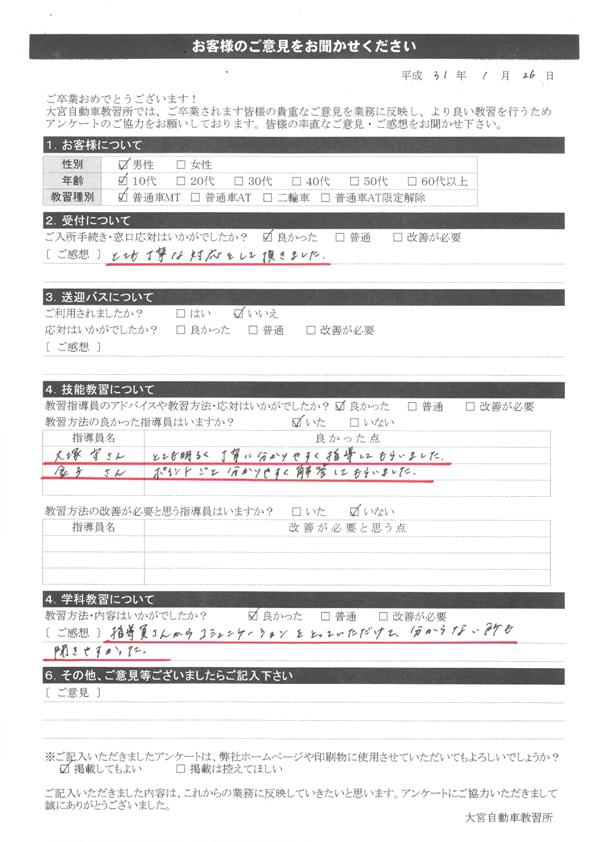 お客様のご意見をお聞かせください
平成 31 年 1 月 26 日
ご卒業おめでとうございます！
大宮自動車教習所では、ご卒業されます皆様の貴重なご意見を業務に反映し、より良い教習を行うため
アンケートのご協力をお願いしております。皆様の率直なご意見・ご感想をお聞かせ下さい。
1. お客様について
性別 ☑男性 □女性
年齢 ☑10代 □20代 □30代 □40代 □50代 □60代以上
教習種別 ☑普通車MT □普通車AT □二輪車 □普通車AT限定解除
2. 受付について
ご入所手続き・窓口応対はいかがでしたか？ ☑良かった □普通 □改善が必要
[ ご感想 ] とても丁寧な対応をして頂きました。
3. 送迎バスについて
ご利用されましたか？ □はい ☑いいえ
応対はいかがでしたか？ □良かった □普通 □改善が必要
[ ご感想 ]
4. 技能教習について
教習指導員のアドバイスや教習方法・応対はいかがでしたか？ ☑良かった □普通 □改善が必要
教習方法の良かった指導員はいますか？ ☑いた □いない
指導員名 良かった点
大塚 さん とても明るく丁寧に分かりやすく指導してもらいました。
金子 さん ポイントごと分かりやすく解答してもらいました。
教習方法の改善が必要と思う指導員はいますか？ □いた ☑いない
指導員名 改善が必要と思う点
4. 学科教習について
教習方法・内容はいかがでしたか？ ☑良かった □普通 □改善が必要
[ ご感想 ] 指導員さんからコミュニケーションをとっていただけて、分からない所も
聞きやすかった。
6. その他、ご意見等ございましたらご記入下さい
[ ご意見 ]
※ご記入いただきましたアンケートは、弊社ホームページや印刷物に使用させていただいてもよろしいでしょうか？
☑掲載してもよい □掲載は控えてほしい
ご記入いただきました内容は、これからの業務に反映していきたいと思います。アンケートにご協力いただきまして
誠にありがとうございました。
大宮自動車教習所